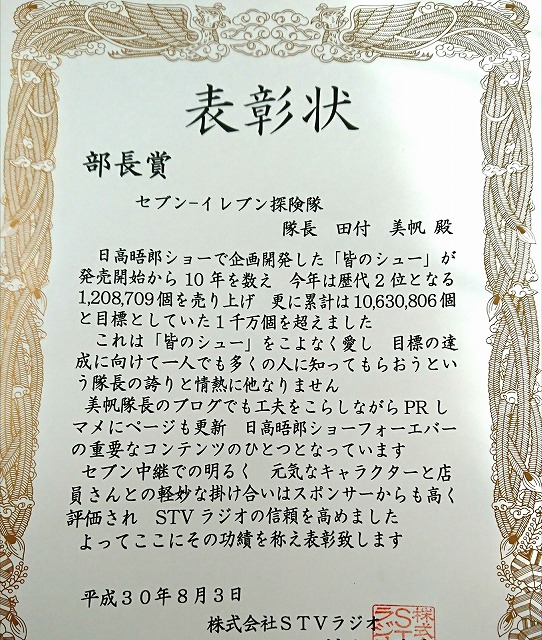 表彰状
部長賞
セブン-イレブン探険隊
隊長 田付 美帆 殿
日高晤郎ショーで企画開発した「皆のシュー」が
発売開始から10年を数え 今年は歴代2位となる
1,208,709個を売り上げ 更に累計は10,630,806個
と目標としていた1千万個を超えました
これは「皆のシュー」をこよなく愛し 目標の達
成に向けて一人でも多くの人に知ってもらおうとい
う隊長の誇りと情熱に他なりません
美帆隊長のブログでも工夫をこらしながらPRし
マメにページも更新 日高晤郎ショーフォーエバー
の重要なコンテンツのひとつとなっています
セブン中継での明るく 元気なキャラクターと店
員さんとの軽妙な掛け合いはスポンサーからも高く
評価され STVラジオの信頼を高めました
よってここにその功績を称え表彰致します
平成30年8月3日
株式会社STVラジオ